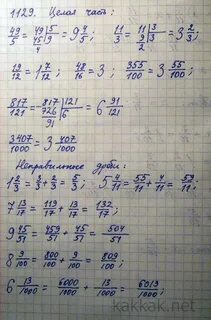 1129. Целая часть:
49/5 = 49|5 45|9 4 = 9 4/5; 11/3 = 11|3 9|3 2 = 3 2/3;
19/12 = 1 7/12; 48/16 = 3; 355/100 = 3 55/100;
817/121 = 817|121 726|6 91 = 6 91/121
3407/1000 = 3 407/1000
Неправильные дроби:
1 2/3 = 3/3 + 2/3 = 5/3; 5 4/11 = 55/11 + 4/11 = 59/11;
7 13/17 = 119/17 + 13/17 = 132/17;
9 45/51 = 459/51 + 45/51 = 504/51
8 9/100 = 800/100 + 9/100 = 809/100;
6 13/1000 = 6000/1000 + 13/1000 = 6013/1000;
kakkak.net